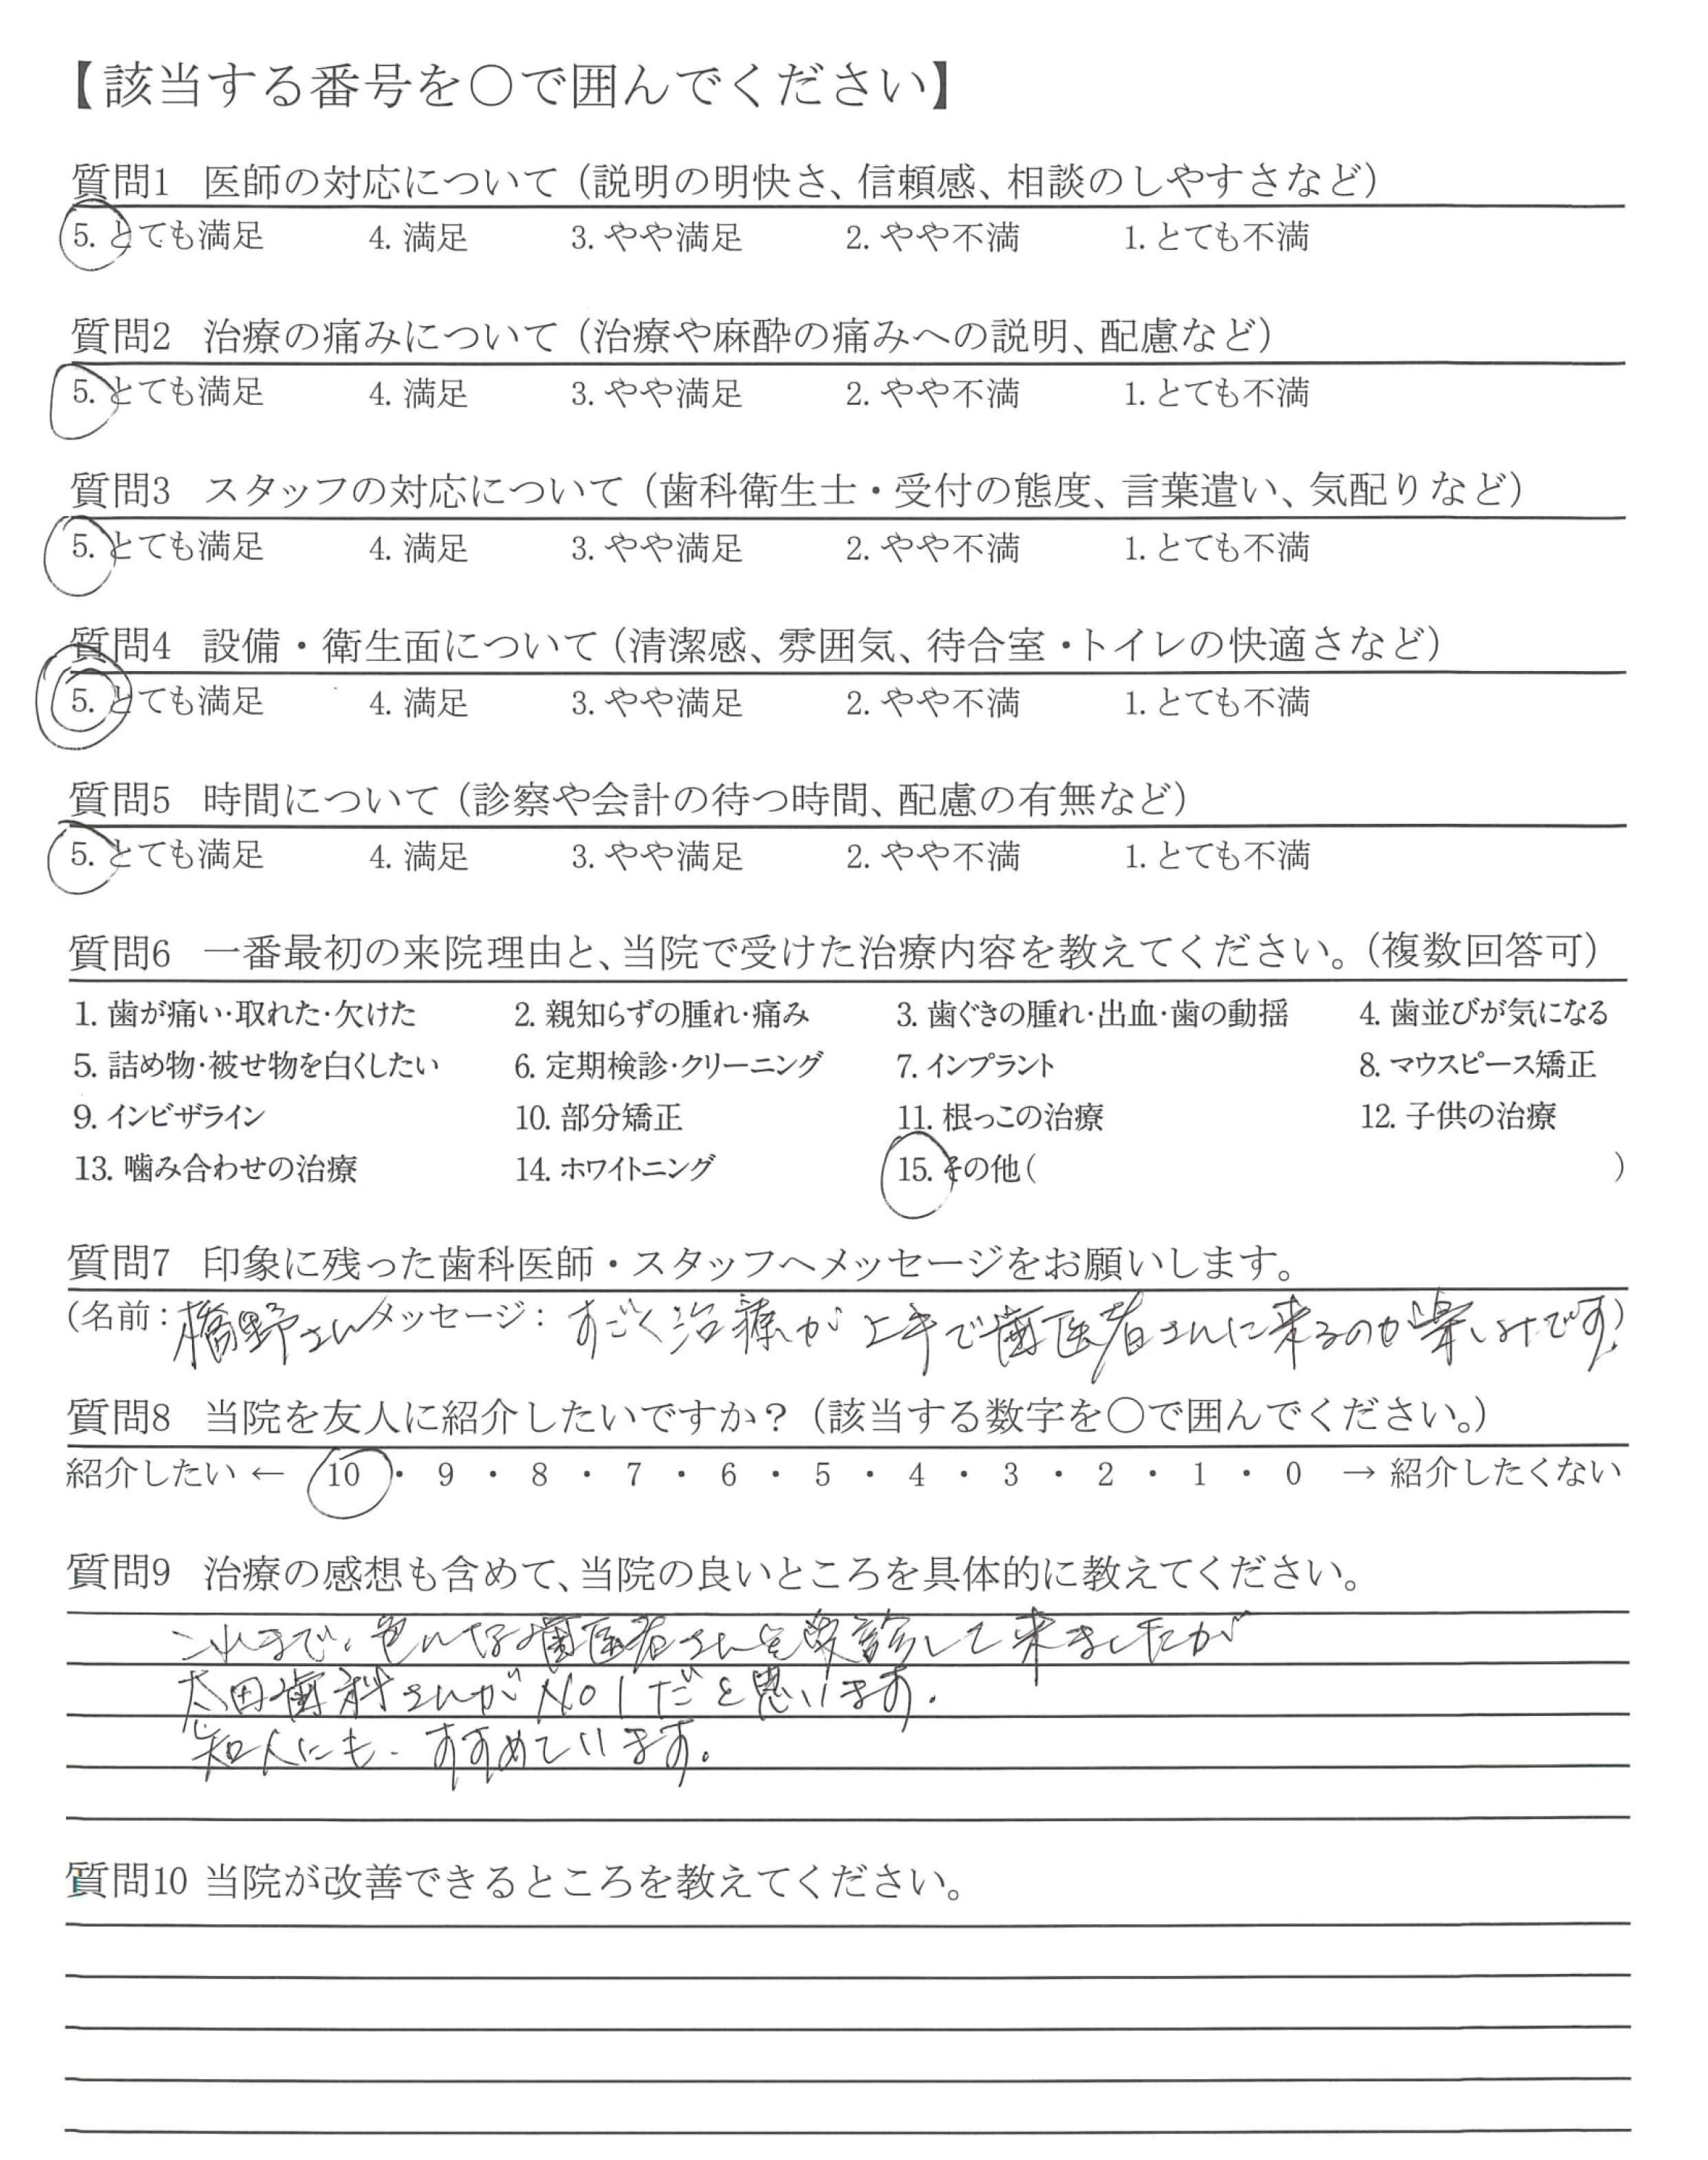 【該当する番号を○で囲んでください】
質問1 医師の対応について（説明の明快さ、信頼感、相談のしやすさなど）
5. とても満足 4. 満足 3. やや満足 2. やや不満 1. とても不満
質問2 治療の痛みについて（治療や麻酔の痛みへの説明、配慮など）
5. とても満足 4. 満足 3. やや満足 2. やや不満 1. とても不満
質問3 スタッフの対応について（歯科衛生士・受付の態度、言葉遣い、気配りなど）
5. とても満足 4. 満足 3. やや満足 2. やや不満 1. とても不満
質問4 設備・衛生面について（清潔感、雰囲気、待合室・トイレの快適さなど）
5. とても満足 4. 満足 3. やや満足 2. やや不満 1. とても不満
質問5 時間について（診察や会計の待つ時間、配慮の有無など）
5. とても満足 4. 満足 3. やや満足 2. やや不満 1. とても不満
質問6 一番最初の来院理由と、当院で受けた治療内容を教えてください。（複数回答可）
1. 歯が痛い・取れた・欠けた 2. 親知らずの腫れ・痛み 3. 歯ぐきの腫れ・出血・歯の動揺 4. 歯並びが気になる
5. 詰め物・被せ物を白くしたい 6. 定期検診・クリーニング 7. インプラント 8. マウスピース矯正
9. インビザライン 10. 部分矯正 11. 根っこの治療 12. 子供の治療
13. 噛み合わせの治療 14. ホワイトニング 15. その他（ ）
質問7 印象に残った歯科医師・スタッフへメッセージをお願いします。
（名前：橋野さん メッセージ：すごく治療が上手で歯医者さんに来るのが楽しみです！）
質問8 当院を友人に紹介したいですか？（該当する数字を○で囲んでください。）
紹介したい ← 10 ・ 9 ・ 8 ・ 7 ・ 6 ・ 5 ・ 4 ・ 3 ・ 2 ・ 1 ・ 0 → 紹介したくない
質問9 治療の感想も含めて、当院の良いところを具体的に教えてください。
これまで、色んな歯医者さんを受診して来ましたが
太田歯科さんがNo1だと思います。
知人にも、すすめています。
質問10 当院が改善できるところを教えてください。